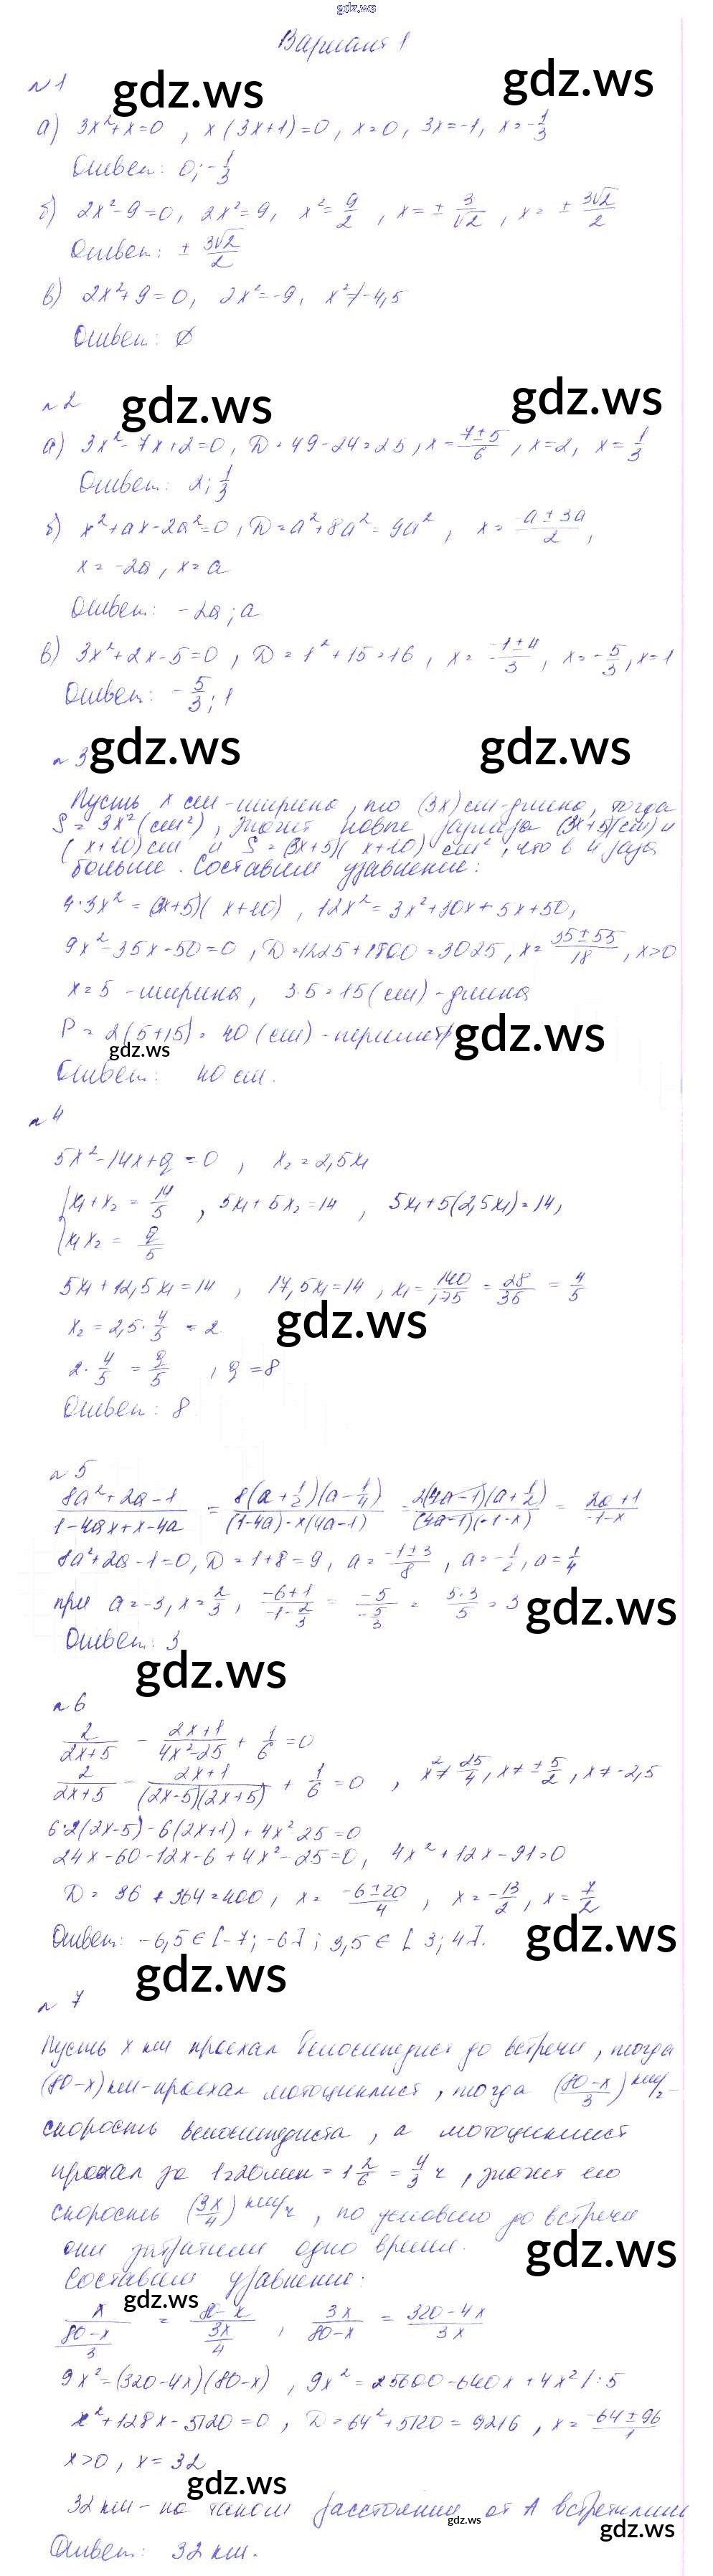 gdz.ws
Вариант 1
№1
gdz.ws gdz.ws
а) 3x²+x=0, x(3x+1)=0, x=0, 3x=-1, x=-1/3
Ответ: 0; -1/3
б) 2x²-9=0, 2x²=9, x²=9/2, x=±3/√2, x=±3√2/2
Ответ: ±3√2/2
в) 2x²+9=0, 2x²=-9, x²≠-4,5
Ответ: ∅
№2
gdz.ws gdz.ws
а) 3x²-7x+2=0, D=49-24=25, x=(7±5)/6, x=2, x=1/3
Ответ: 2; 1/3
б) x²+ax-2a²=0, D=a²+8a²=9a², x=(-a±3a)/2,
x=-2a, x=a
Ответ: -2a; a
в) 3x²+2x-5=0, D=1²+15=16, x=(-1±4)/3, x=-5/3, x=1
Ответ: -5/3; 1
№3
gdz.ws gdz.ws
Пусть x см-ширина, то (3x) см-длина, тогда
S=3x² (см²), значит новые размеры (3x+5)(см) и
(x+10) см и S=(3x+5)(x+10) см², что в 4 раза
больше. Составим уравнение:
4·3x²=(3x+5)(x+10), 12x²=3x²+30x+5x+50,
9x²-35x-50=0, D=1225+1800=3025, x=(35±55)/18, x>0
x=5 -ширина, 3·5=15(см)-длина
P=2(5+15)=40(см)-периметр
gdz.ws gdz.ws
Ответ: 40 см.
№4
5x²-14x+q=0, x₂=2,5x₁
{x₁+x₂=14/5, 5x₁+5x₂=14, 5x₁+5(2,5x₁)=14,
{x₁x₂=q/5
5x₁+12,5x₁=14, 17,5x₁=14, x₁=140/175=28/35=4/5
x₂=2,5·4/5=2
gdz.ws
2·4/5=q/5, q=8
Ответ: 8
№5
(8a²+2a-1)/(1-4ax+x-4a)=8(a+1/2)(a-1/4)/((1-4a)-x(4a-1))=2(4a-1)(a+1/2)/((4a-1)(-1-x))=(2a+1)/(-1-x)
8a²+2a-1=0, D=1+8=9, a=(-1±3)/8, a=-1/2, a=1/4
при a=-3, x=2/3, (-6+1)/(-1-2/3)=-5/(-5/3)=5·3/5=3
gdz.ws
Ответ: 3
gdz.ws
№6
2/(2x+5)-(2x+1)/(4x²-25)+1/6=0
2/(2x+5)-(2x+1)/((2x-5)(2x+5))+1/6=0, x²≠25/4, x≠±5/2, x≠-2,5
6·2(2x-5)-6(2x+1)+4x²-25=0
24x-60-12x-6+4x²-25=0, 4x²+12x-91=0
D=36+364=400, x=(-6±20)/4, x=-13/2, x=7/2
Ответ: -6,5∈[-7; -6]; 3,5∈[3; 4].
gdz.ws
gdz.ws
№7
Пусть x км проехал велосипедист до встречи, тогда
(80-x) км-проехал мотоциклист, тогда ((80-x)/3) км/ч-
скорость велосипедиста, а мотоциклист
проехал за 1ч20мин=1 2/6=4/3 ч, значит его
скорость (3x/4) км/ч, по условию до встречи
они затратили одно время.
gdz.ws
Составим уравнение:
gdz.ws
x/((80-x)/3)=(80-x)/(3x/4), 3x/(80-x)=(320-4x)/3x
9x²=(320-4x)(80-x), 9x²=25600-640x+4x² /:5
x²+128x-5120=0, D=64²+5120=9216, x=(-64±96)/1
x>0, x=32
gdz.ws
32 км-на таком расстоянии от А встретились
gdz.ws
gdz.ws
Ответ: 32 км.